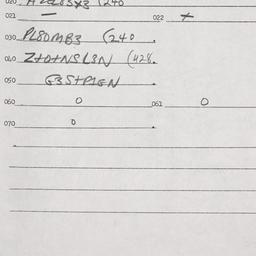 021 — 022 +
030 PL80MB3 (240
040 Z+0+NSL8N (428.
050 G3S+P1GN
060 0 061 0
070 0